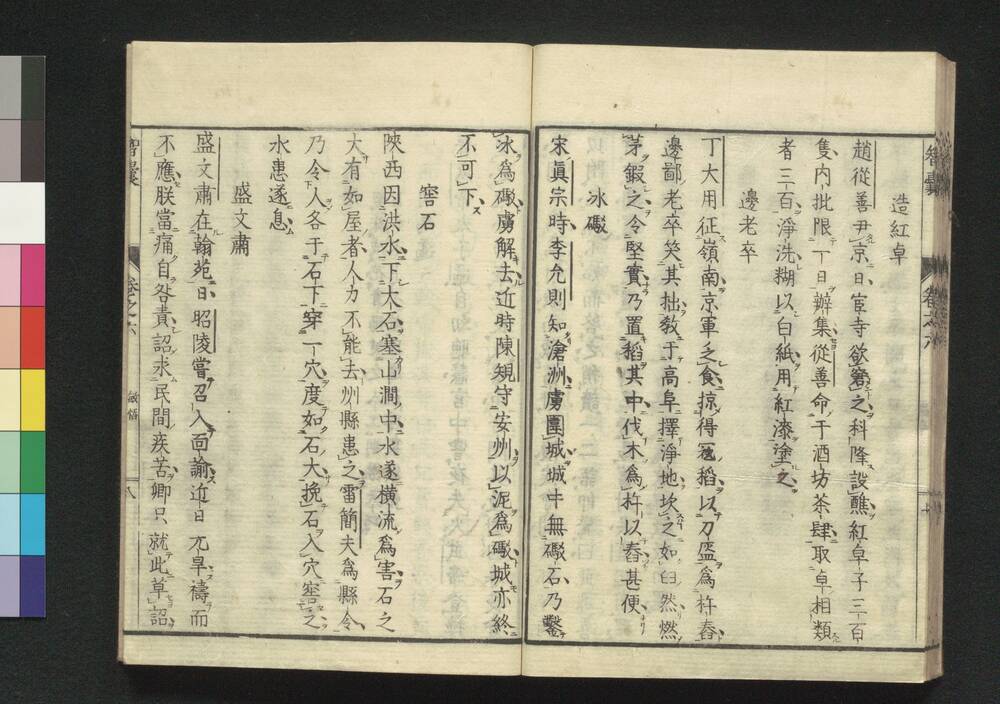 造紅卓
趙從善尹京日宦寺欲窘之科降設醮紅卓子三百
隻內批限一日辦集從善命于酒坊茶肆取卓相類
者三百淨洗糊以白紙用紅漆塗之
邊老卒
丁大用征嶺南京軍乏食掠得寇稻以刀盔爲杵舂
邊鄙老卒笑其拙教于高阜擇淨地坎之如臼然燃
茅鍛之令堅實乃置稻其中伐木爲杵以舂甚便
冰礮
宋眞宗時李允則知滄洲虜圍城城中無礮石乃鑿
冰爲礮虜解去近時陳規守安州以泥爲礮城亦終
不可下
窖石
陝西因洪水下大石塞山澗中水遂橫流爲害石之
大有如屋者人力不能去州縣患之雷簡夫爲縣令
乃令人各于石下穿一穴度如石大挽石入穴窖之
水患遂息
盛文肅
盛文肅在翰苑日昭陵嘗召入面諭近日亢旱禱而
不應朕當痛自咎責詔求民間疾苦卿只就此草詔
智囊
卷之六